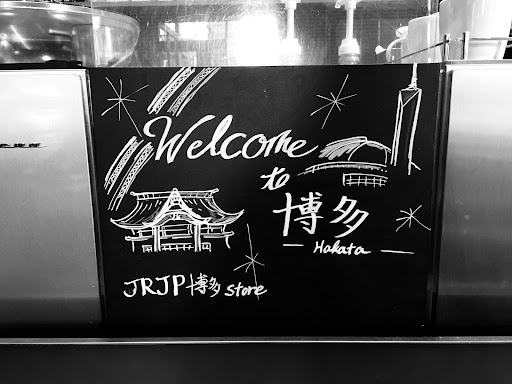 Welcome
to
博多
— Hakata —
JRJP博多 store